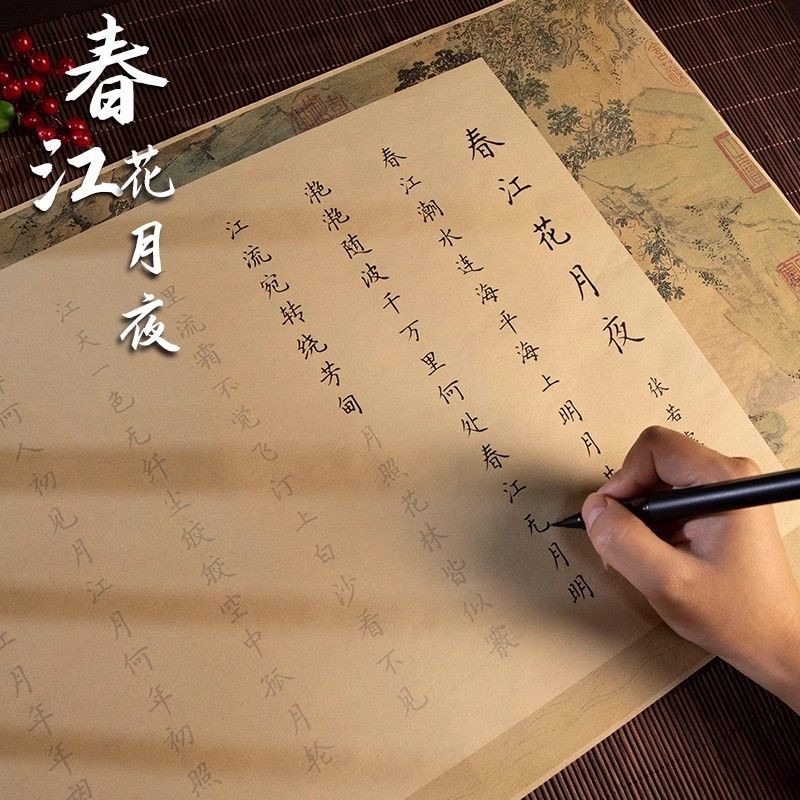 春
江花
月
夜
春江花月夜
张若虚
春江潮水连海平海上明月共
滟滟随波千万里何处春江无月明
江流宛转绕芳甸月照花林皆似霰
里流霜不觉飞汀上白沙看不见
江天一色无纤尘皎皎空中孤月轮
何人初见月江月何年初照
江月年年